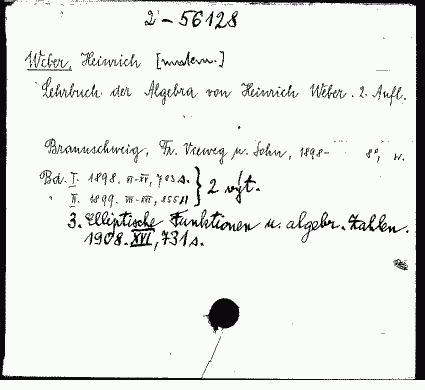 2-56128
Weber, Heinrich [matem.]
Lehrbuch der Algebra von Heinrich Weber. 2. Aufl.
Braunschweig, Fr. Vieweg u. Sohn, 1898- 8°, w.
Bd. I. 1898. III-XV, 703 s. } 2 egz.
" II. 1899. III-XVI, 855 s.
3. Elliptische Funktionen u. algebr. Zahlen.
1908. XVI, 731 s.